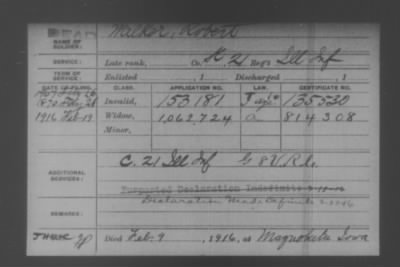 DEAD
NAME OF SOLDIER: Walker, Robert
SERVICE: Late rank, Co. K, 21 Reg't Ill Inf
TERM OF SERVICE: Enlisted , 1 Discharged , 1
DATE OF FILING. CLASS. APPLICATION NO. LAW. CERTIFICATE NO.
Invalid, 153181 135530
1870 Invalid,
1916 Feb-19 Widow, 1,062,724 a 814308
Minor,
ADDITIONAL SERVICES: C. 21 Ill Inf G 8 V.R.C.
Purported Declaration Indefinite
REMARKS: Declaration Made Definite
Died Feb. 9, 1916, at Maquoketa Iowa